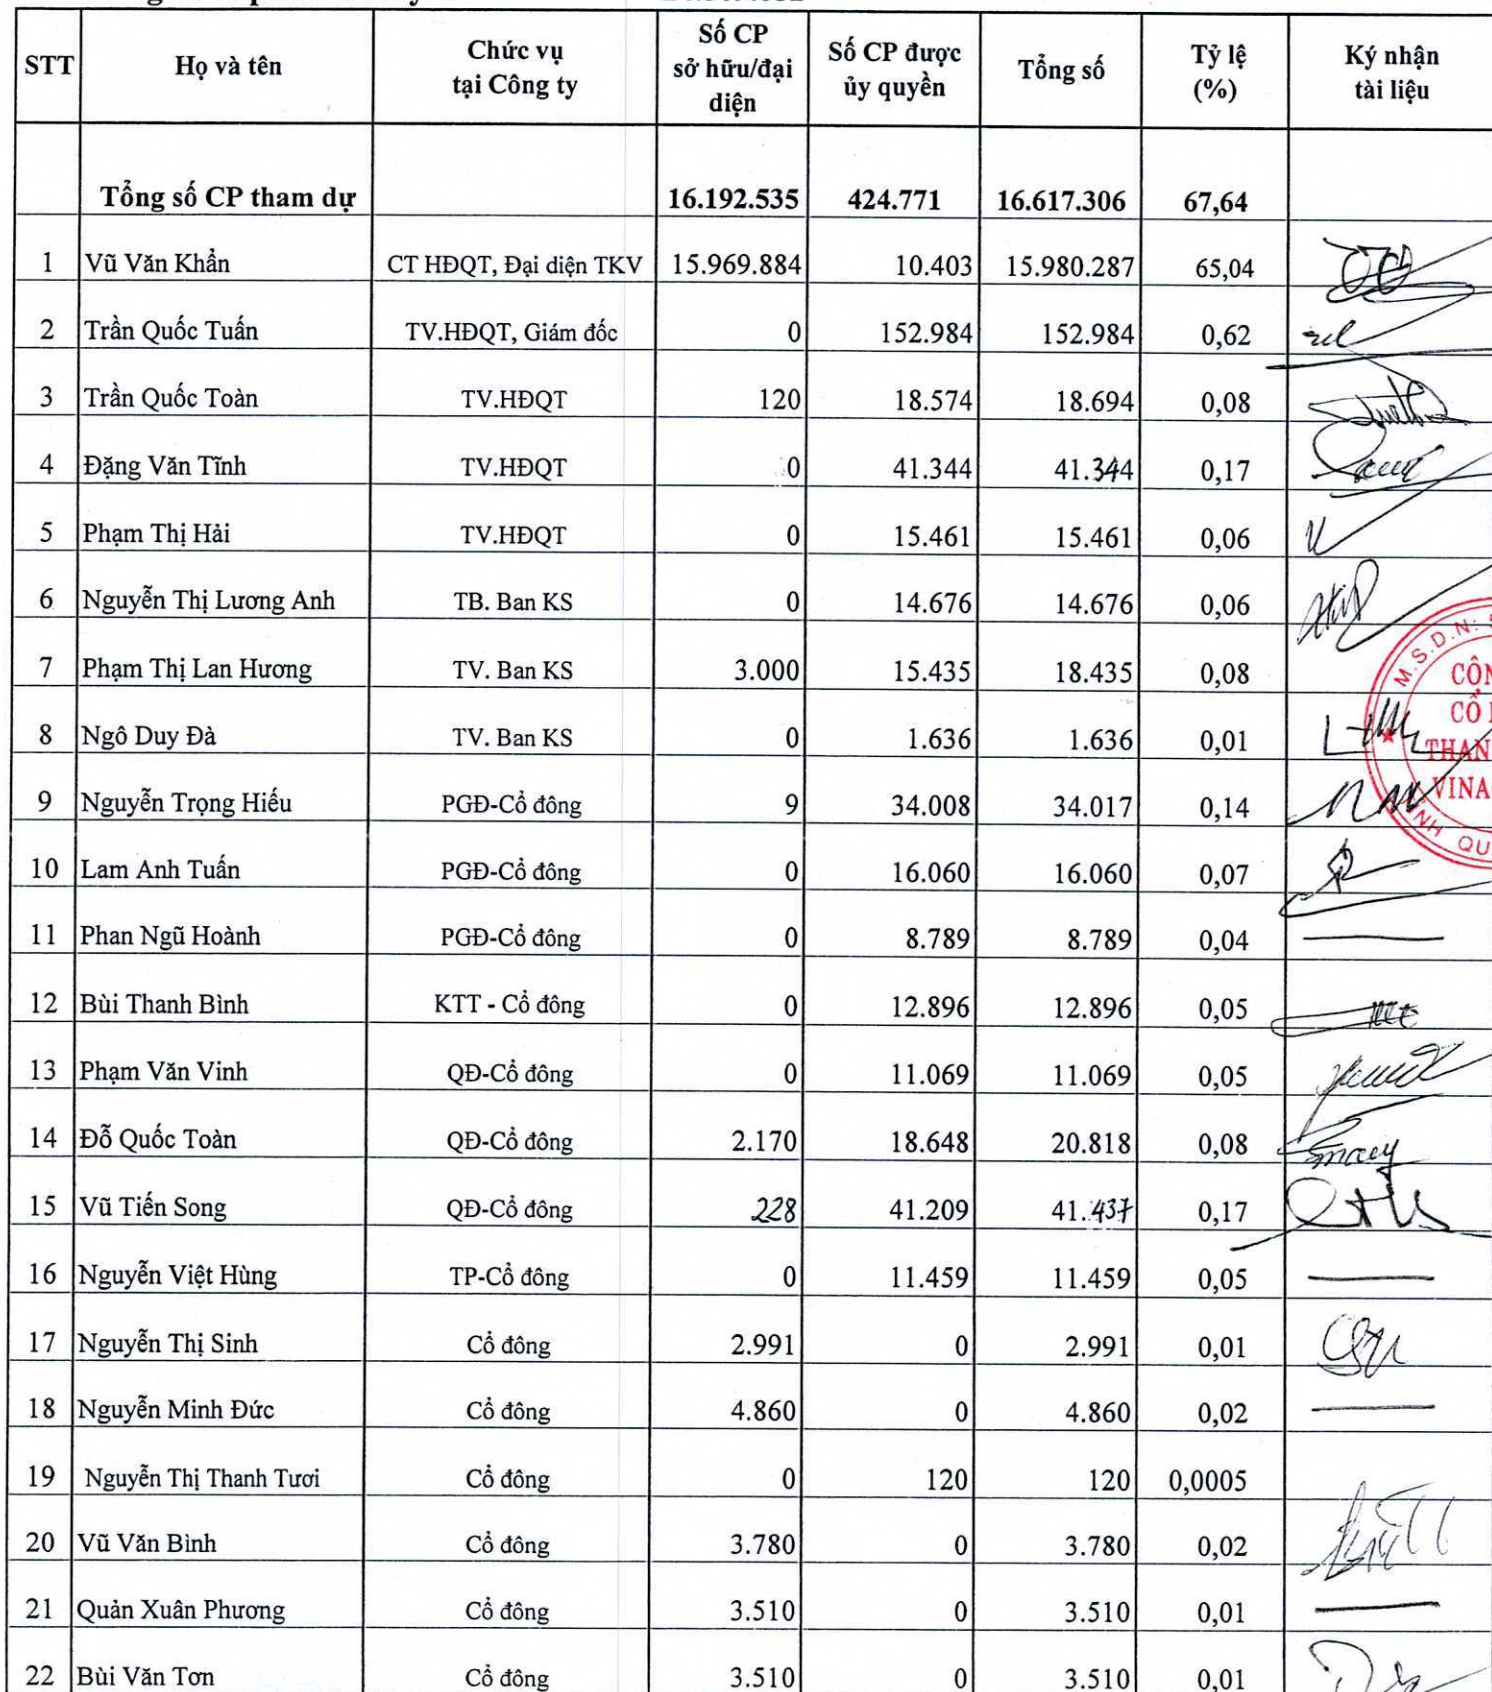 STT Họ và tên Chức vụ tại Công ty Số CP sở hữu/đại diện Số CP được ủy quyền Tổng số Tỷ lệ (%) Ký nhận tài liệu
Tổng số CP tham dự 16.192.535 424.771 16.617.306 67,64
1 Vũ Văn Khẩn CT HĐQT, Đại diện TKV 15.969.884 10.403 15.980.287 65,04
2 Trần Quốc Tuấn TV.HĐQT, Giám đốc 0 152.984 152.984 0,62
3 Trần Quốc Toàn TV.HĐQT 120 18.574 18.694 0,08
4 Đặng Văn Tĩnh TV.HĐQT 0 41.344 41.344 0,17
5 Phạm Thị Hải TV.HĐQT 0 15.461 15.461 0,06
6 Nguyễn Thị Lương Anh TB. Ban KS 0 14.676 14.676 0,06
7 Phạm Thị Lan Hương TV. Ban KS 3.000 15.435 18.435 0,08
8 Ngô Duy Đà TV. Ban KS 0 1.636 1.636 0,01
9 Nguyễn Trọng Hiếu PGĐ-Cổ đông 9 34.008 34.017 0,14
10 Lam Anh Tuấn PGĐ-Cổ đông 0 16.060 16.060 0,07
11 Phan Ngũ Hoành PGĐ-Cổ đông 0 8.789 8.789 0,04
12 Bùi Thanh Bình KTT - Cổ đông 0 12.896 12.896 0,05
13 Phạm Văn Vinh QĐ-Cổ đông 0 11.069 11.069 0,05
14 Đỗ Quốc Toàn QĐ-Cổ đông 2.170 18.648 20.818 0,08
15 Vũ Tiến Song QĐ-Cổ đông 228 41.209 41.437 0,17
16 Nguyễn Việt Hùng TP-Cổ đông 0 11.459 11.459 0,05
17 Nguyễn Thị Sinh Cổ đông 2.991 0 2.991 0,01
18 Nguyễn Minh Đức Cổ đông 4.860 0 4.860 0,02
19 Nguyễn Thị Thanh Tươi Cổ đông 0 120 120 0,0005
20 Vũ Văn Bình Cổ đông 3.780 0 3.780 0,02
21 Quản Xuân Phương Cổ đông 3.510 0 3.510 0,01
22 Bùi Văn Tơn Cổ đông 3.510 0 3.510 0,01
M.S.D.N: